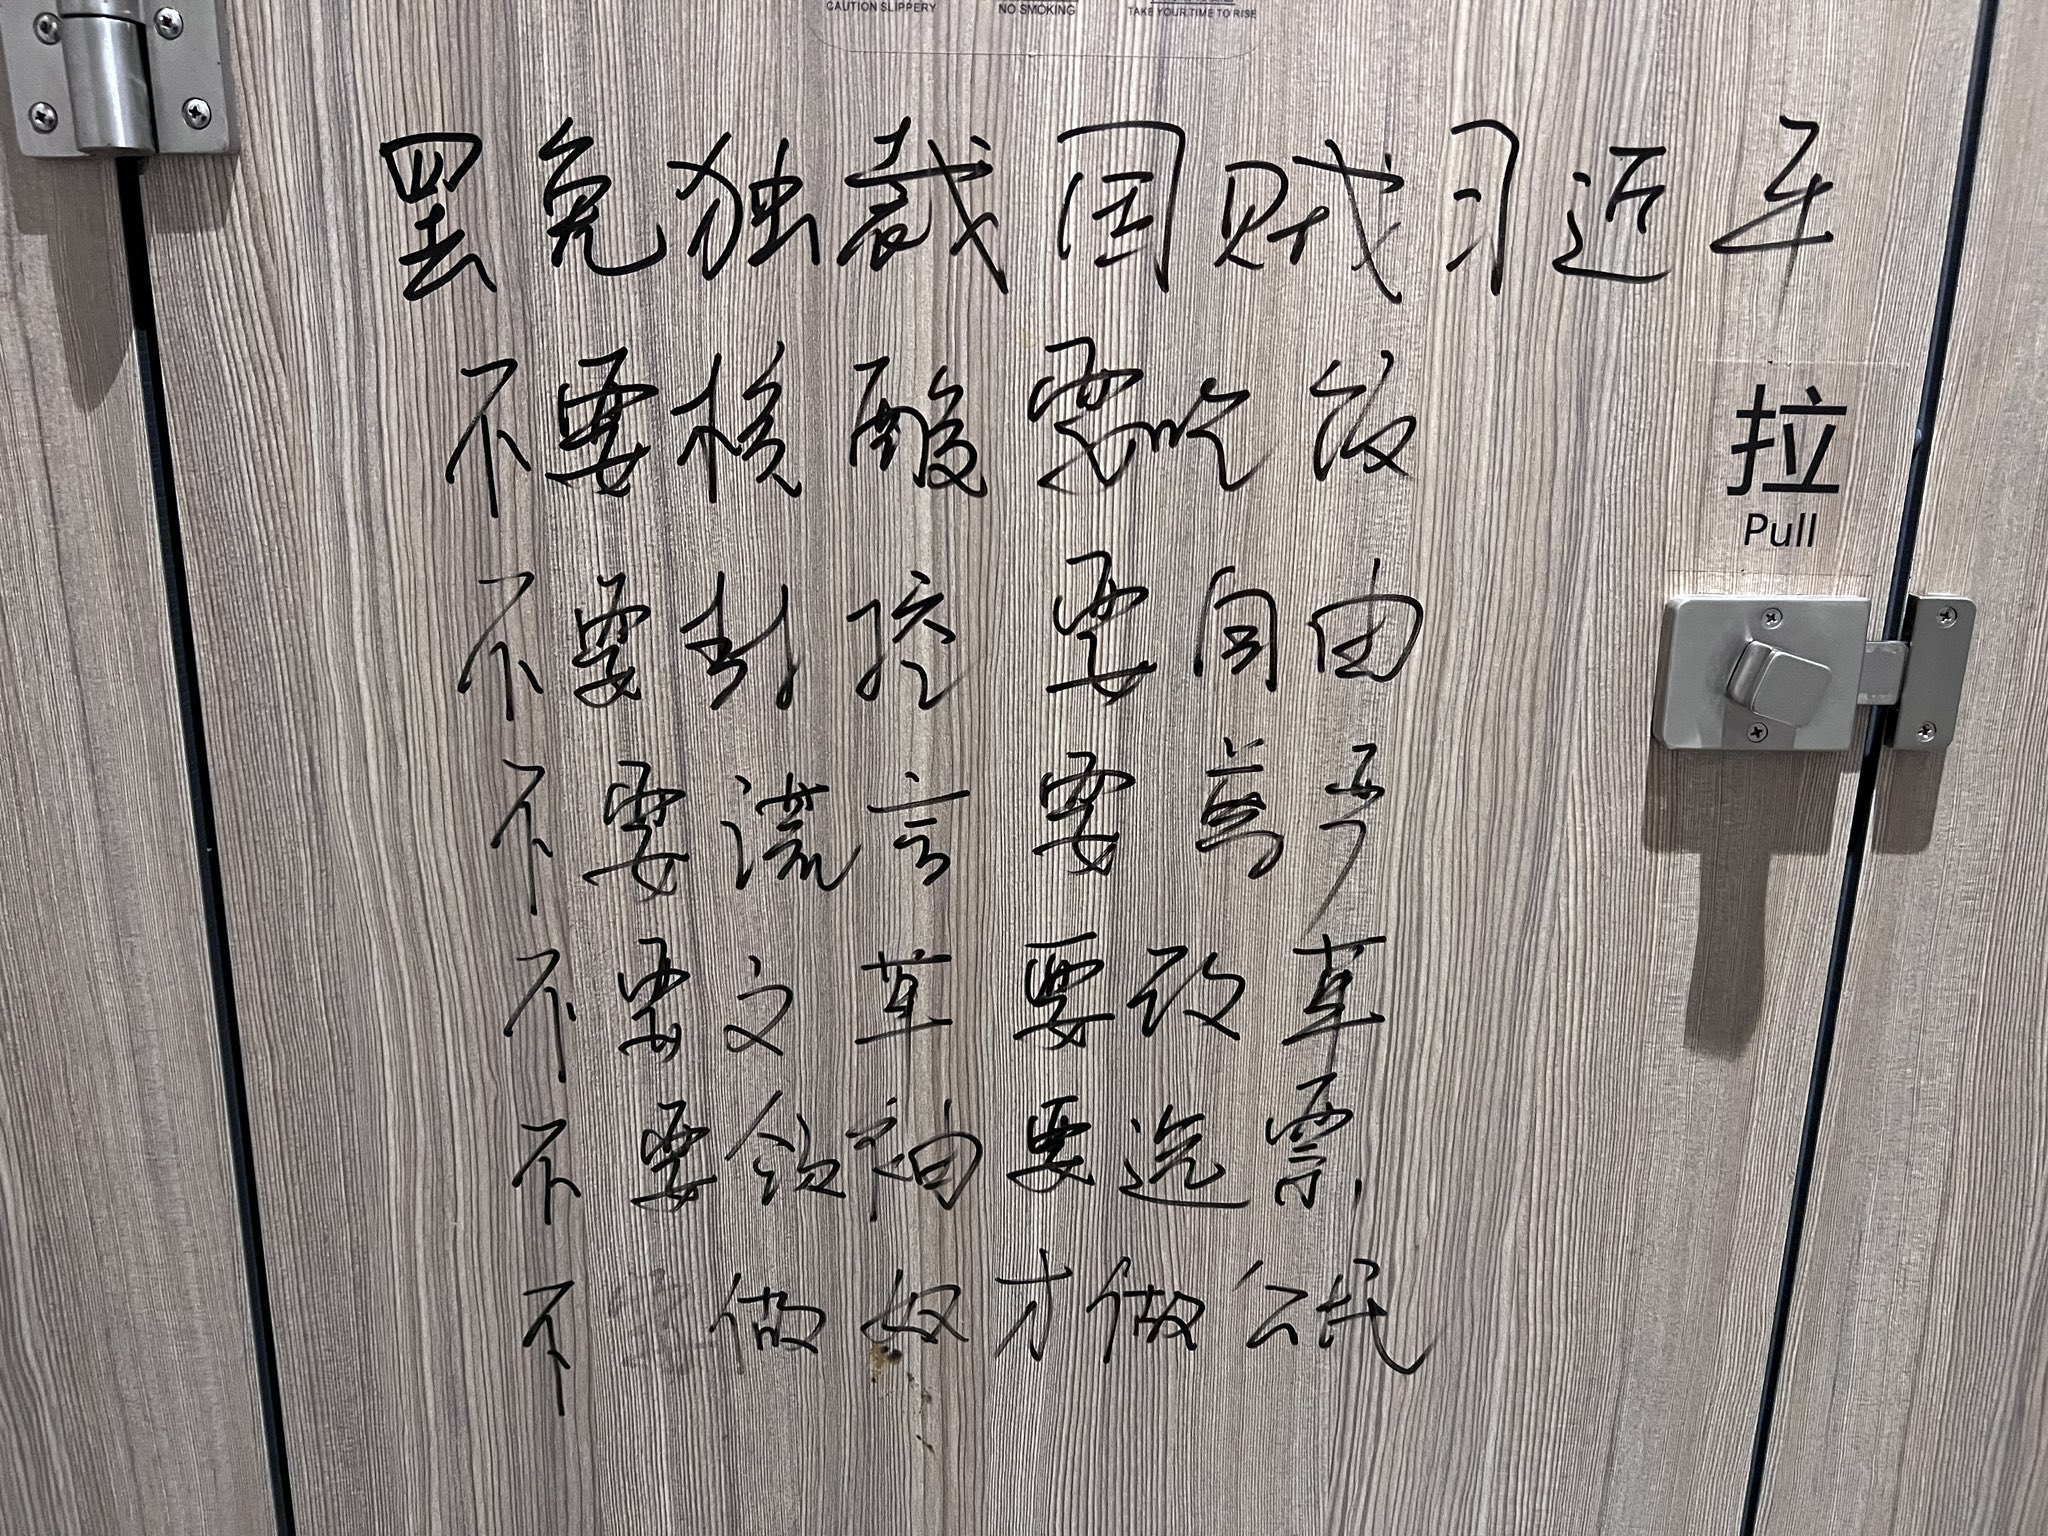 CAUTION SLIPPERY NO SMOKING TAKE YOUR TIME TO RISE
罢免独裁国贼习近平
不要核酸要吃饭
不要封控要自由
拉
Pull
不要谎言要尊严
不要文革要改革
不要领袖要选票
不做奴才做公民